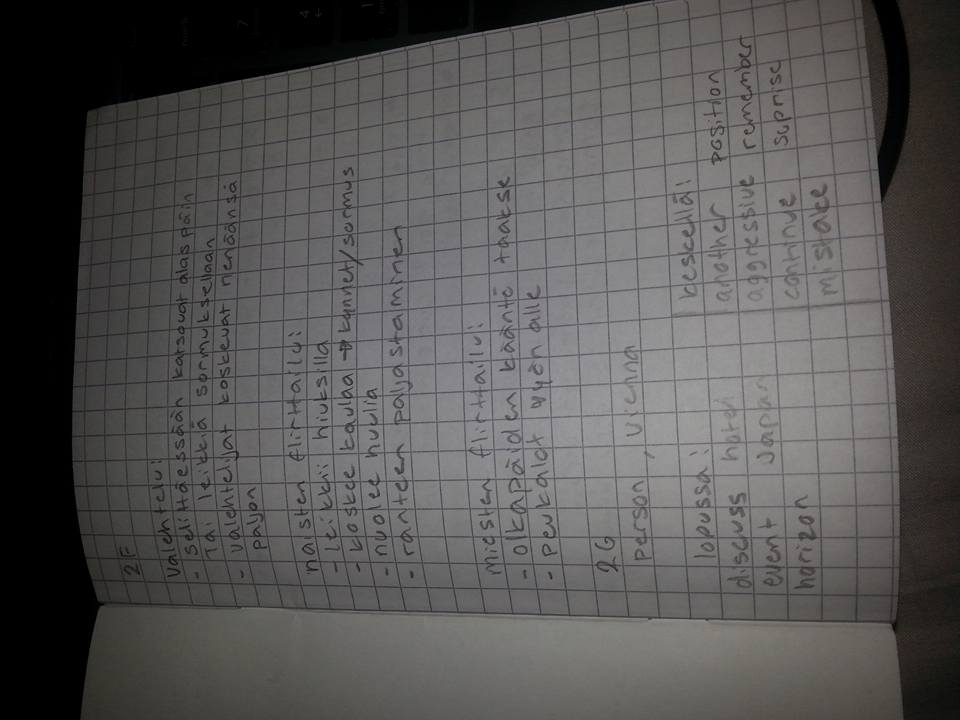 2F
Valehtelu:
- selittäessään katsovat alas päin
Tai leikkiä sormuksellaan
- valehtelijat koskevat nenäänsä
paljon
naisten flirttailu:
- leikkii hiuksilla
- koskee kaulaa → kynnet/sormus
- nuolee huulia
- ranteen paljastaminen
miesten flirttailu:
- olkapäiden kääntö taakse
- peukalot vyön alle
2G
person, vienna
lopussa:
discuss hotel
event Japan
horizon
keskellä:
another position
aggressive remember
continue suprise
mistake